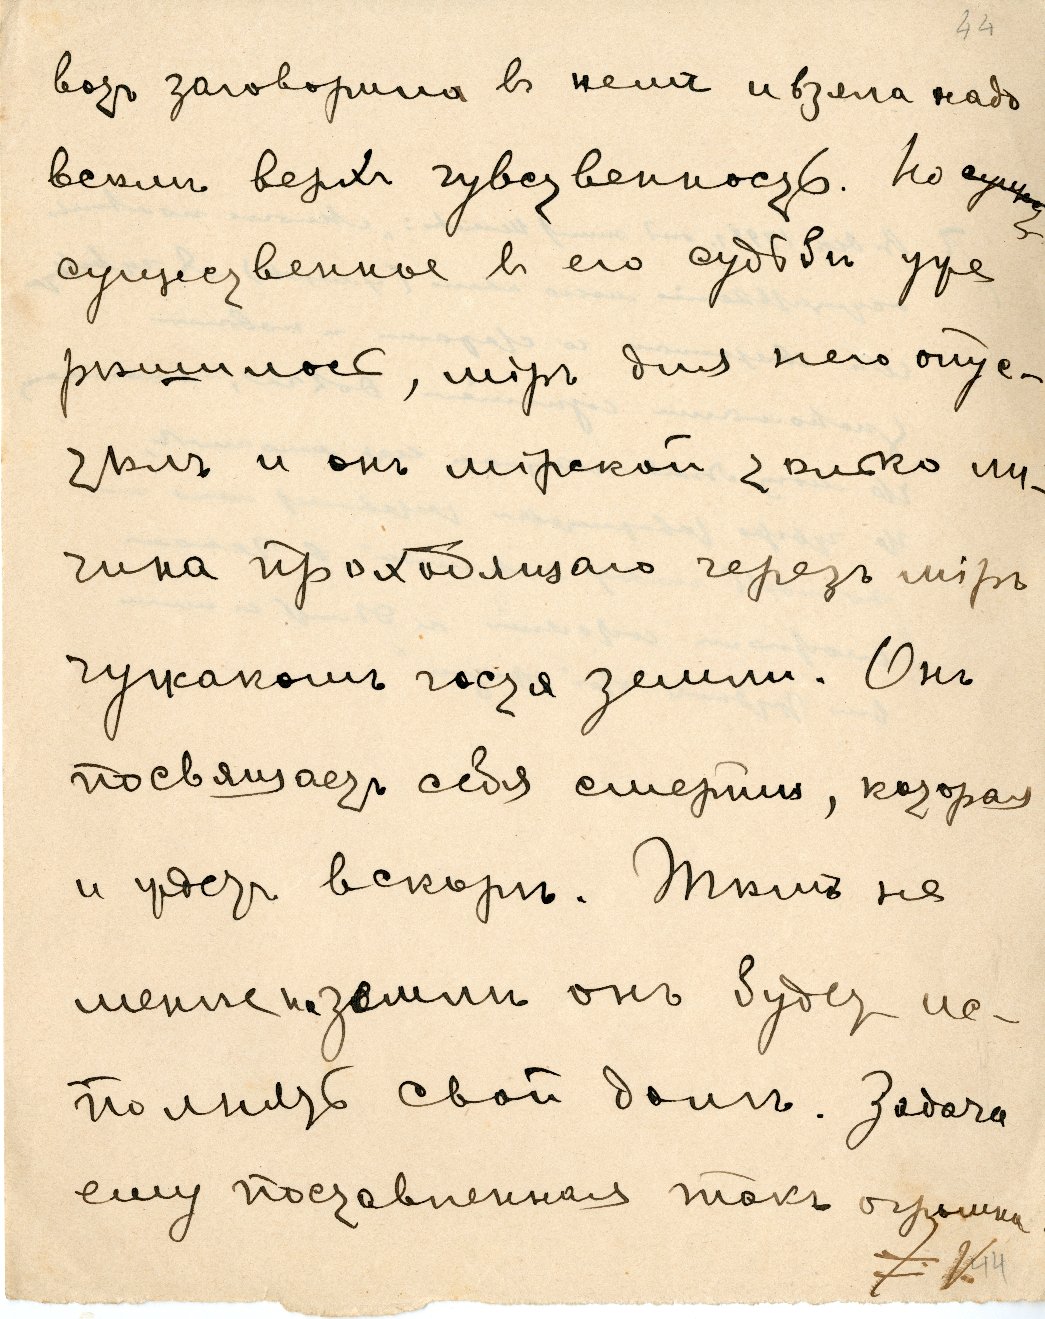 44
вотъ заговорила въ немъ и взяла надо
всѣмъ верхъ чувственность. Но
существенное въ его судьбѣ уже
рѣшилось, міръ для него опус-
тѣлъ и онъ мірской только ли-
чина проходящаго черезъ міръ
чужакомъ гостя земли. Онъ
посвящаетъ себя смерти, которая
и ждетъ вскорѣ. Тѣмъ не
менѣе на землѣ онъ будетъ ис-
полнять свой долгъ. Задача
ему поставленная такъ огромна.
44